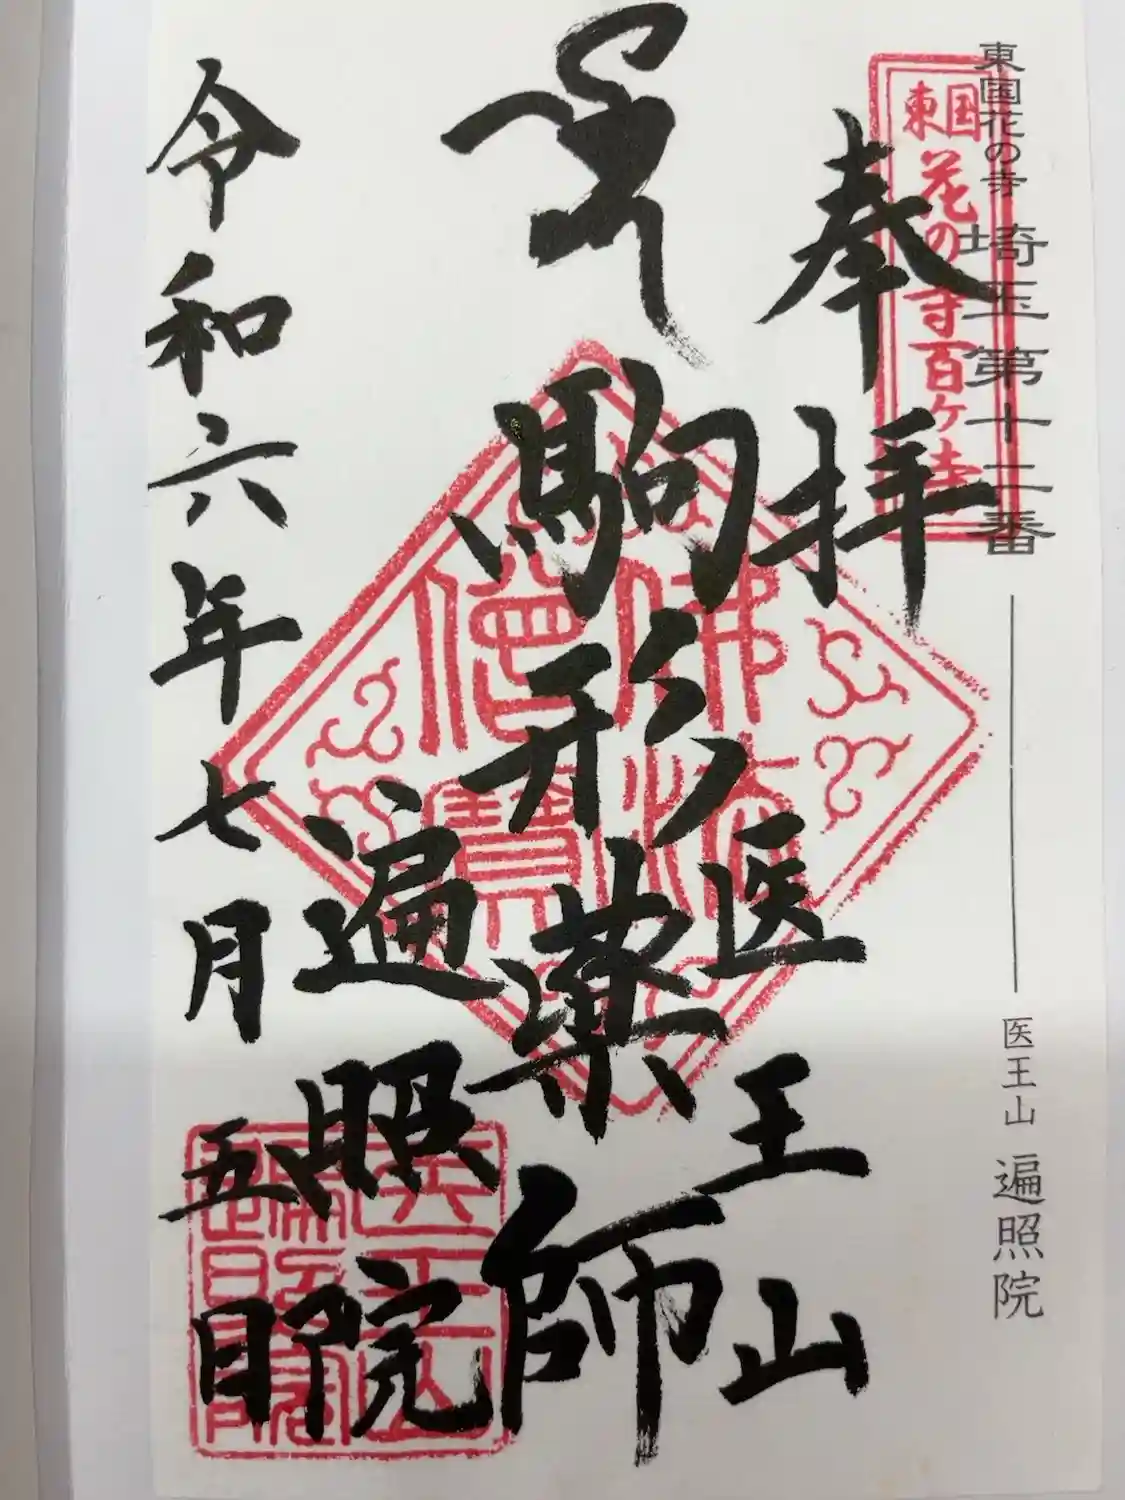 東国花の寺 埼玉第十二番 医王山 遍照院
東国花の寺百ヶ寺
奉拝
医王山
駒形薬師
佛法
僧寶
遍照院
令和六年七月五日
医王山
遍照院